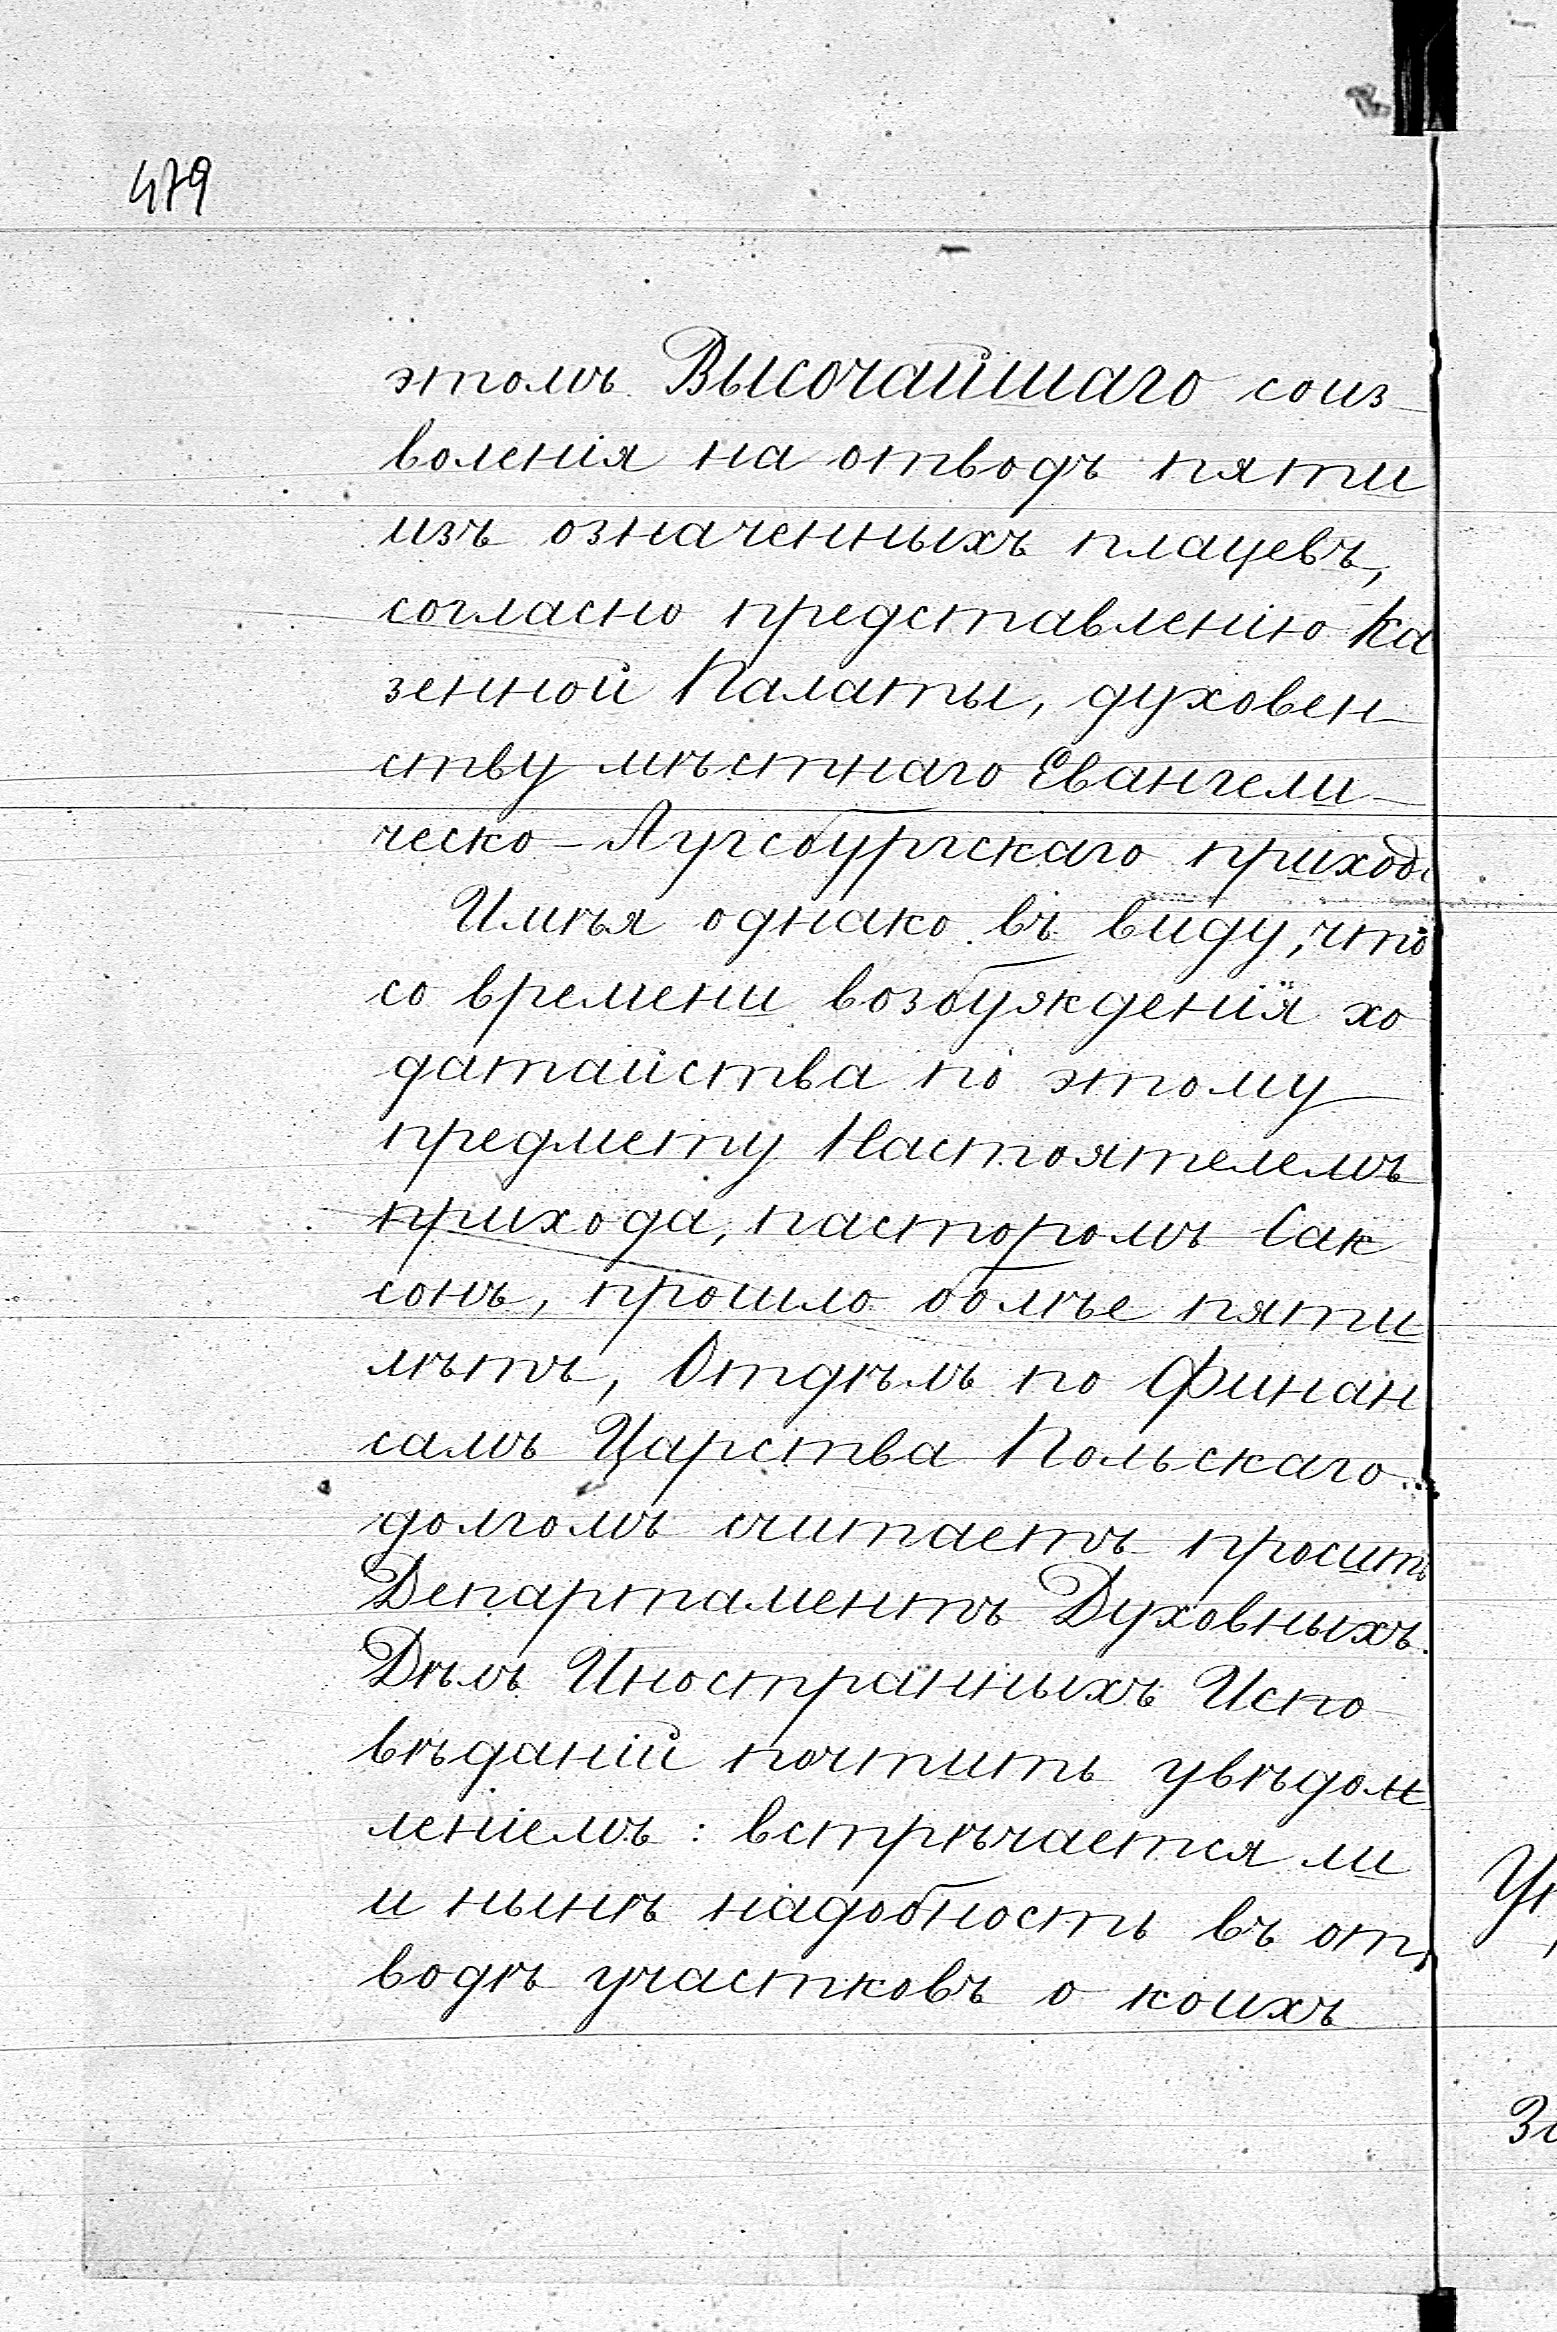 479
этомъ Высочайшаго соиз-
воленія на отводъ пяти
изъ означенныхъ плацевъ,
согласно представленію Ка
зенной Палаты, духовен-
ству мѣстнаго Евангели-
ческо-Аугсбургскаго прихода
Имѣя однако въ виду, что
со времени возбужденія хо
датайства по этому
предмету Настоятелемъ
прихода, пасторомъ Сак
сонъ, прошло болѣе пяти
лѣтъ, Отдѣлъ по Финан
самъ Царства Польскаго
долгомъ считаетъ просить
Департаментъ Духовныхъ
Дѣлъ Иностранныхъ Испо-
вѣданій почтить увѣдом
леніемъ: встрѣчается ли
и нынѣ надобность въ от
водѣ участковъ о коихъ